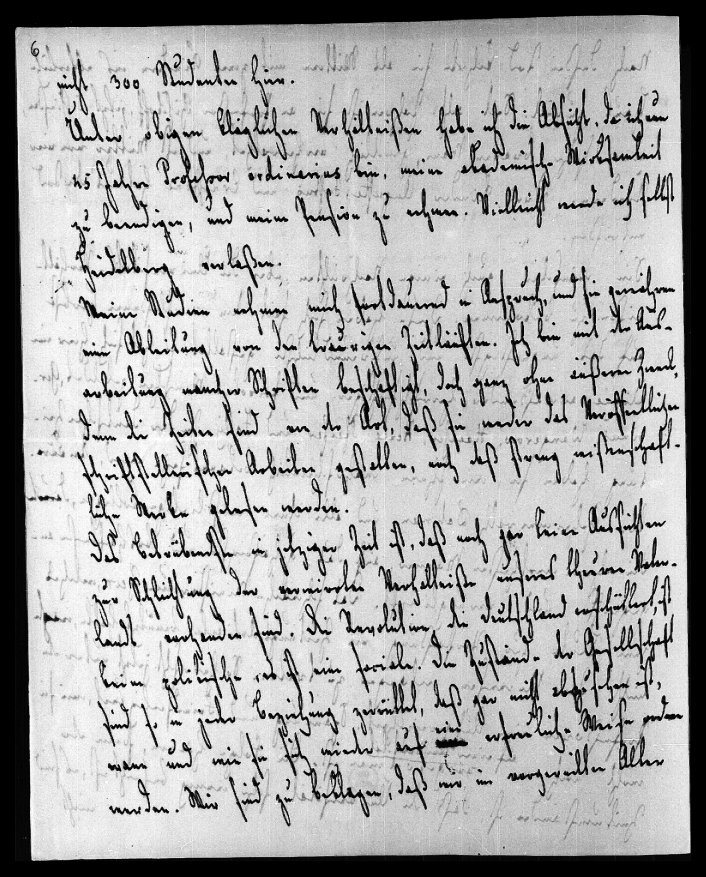 6
nicht 300 Studenten hier.
Unter obigen kläglichen Verhältnißen habe ich die Absicht, da ich nun
25 Jahre Professor ordinarius bin, meine akademische Wirksamkeit
zu beendigen, und meine Pension zu nehmen. Vielleicht werde ich selbst
Heidelberg verlaßen.
Meine Studien nehmen mich fortdauernd in Anspruch, und sie gewähren
eine Ableitung von den traurigen Zeitläuften. Ich bin mit der Aus-
arbeitung mancher Schriften beschäftigt, doch ganz ohne äußeren Zweck,
denn die Zeiten sind von der Art, daß sie weder das Veröffentlichen
schriftstellerischer Arbeiten gestatten, noch daß streng wissenschaft-
liche Werke gelesen werden.
Das Betrübendste in jetziger Zeit ist, daß noch gar keine Aussichten
zur Schlichtung der verwirrten Verhältniße unseres theuren Vater-
lands vorhanden sind. Die Revolution, die Deutschland erschüttert, ist
keine politische, es ist eine sociale. Die Zustände der Gesellschaft
sind so in jeder Beziehung zerrüttet, daß gar nicht abzusehen ist,
wann und wie sie sich wieder auf eine erfreuliche Weise ordnen
werden. Wir sind zu beklagen, daß wir im vorgerückten Alter